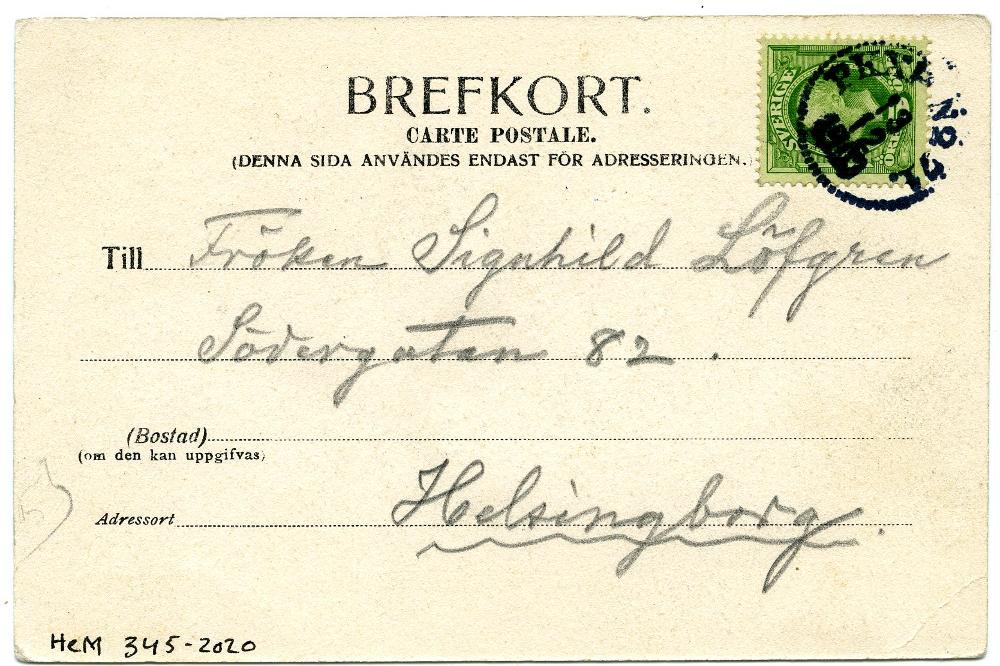 BREFKORT.
CARTE POSTALE.
(DENNA SIDA ANVÄNDES ENDAST FÖR ADRESSERINGEN.)
SVERIGE
Till Fröken Signhild Löfgren
Södergatan 82.
(Bostad)
(om den kan uppgifvas)
Adressort Helsingborg.
HeM 345-2020